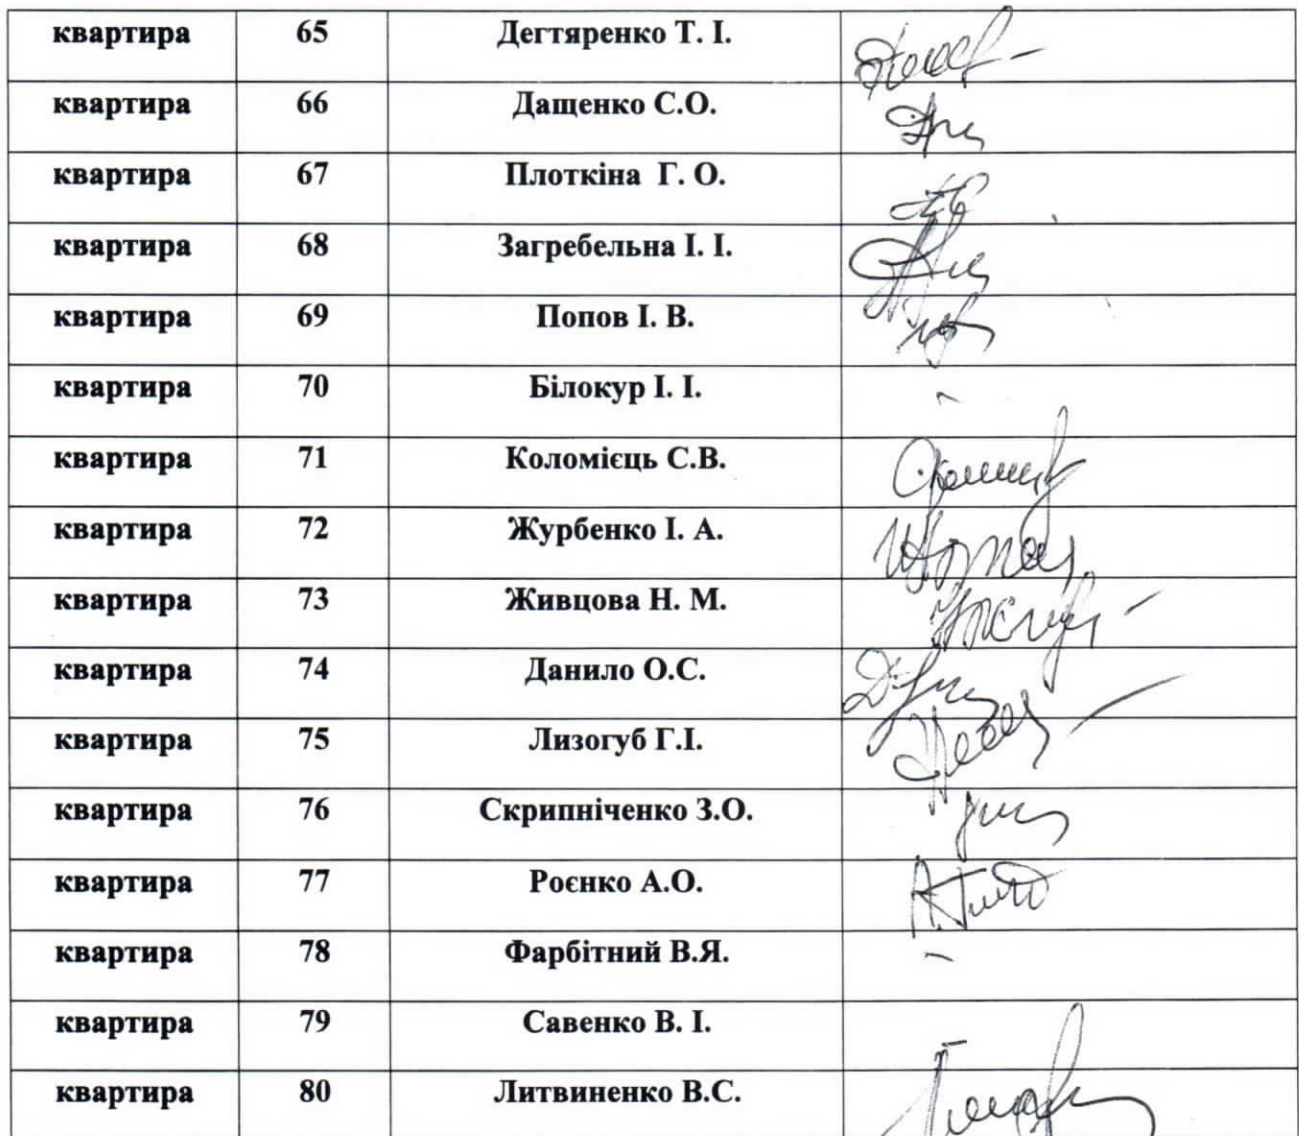 квартира 65 Дегтяренко Т. І.
квартира 66 Дащенко С.О.
квартира 67 Плоткіна Г. О.
квартира 68 Загребельна І. І.
квартира 69 Попов І. В.
квартира 70 Білокур І. І.
квартира 71 Коломієць С.В.
квартира 72 Журбенко І. А.
квартира 73 Живцова Н. М.
квартира 74 Данило О.С.
квартира 75 Лизогуб Г.І.
квартира 76 Скрипніченко З.О.
квартира 77 Роєнко А.О.
квартира 78 Фарбітний В.Я.
квартира 79 Савенко В. І.
квартира 80 Литвиненко В.С.